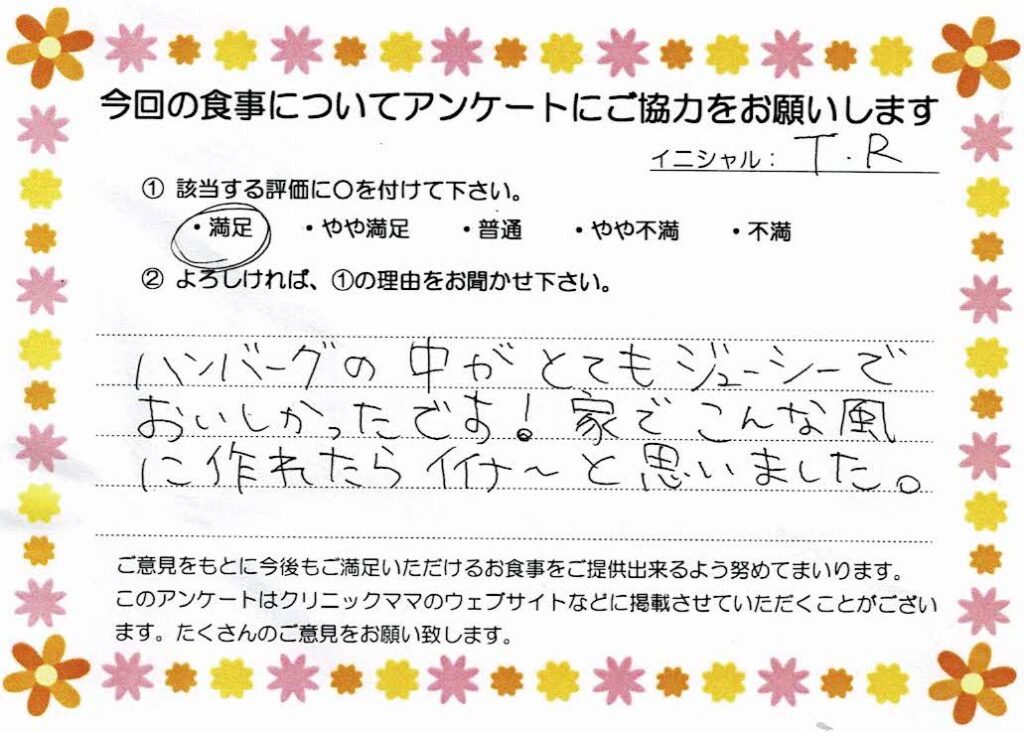 今回の食事についてアンケートにご協力をお願いします
イニシャル： T.R
① 該当する評価に〇を付けて下さい。
・満足 ・やや満足 ・普通 ・やや不満 ・不満
② よろしければ、①の理由をお聞かせ下さい。
ハンバーグの中がとてもジューシーで
おいしかったです！家でこんな風
に作れたらイイナ～と思いました。
ご意見をもとに今後もご満足いただけるお食事をご提供出来るよう努めてまいります。
このアンケートはクリニックママのウェブサイトなどに掲載させていただくことがござい
ます。たくさんのご意見をお願い致します。